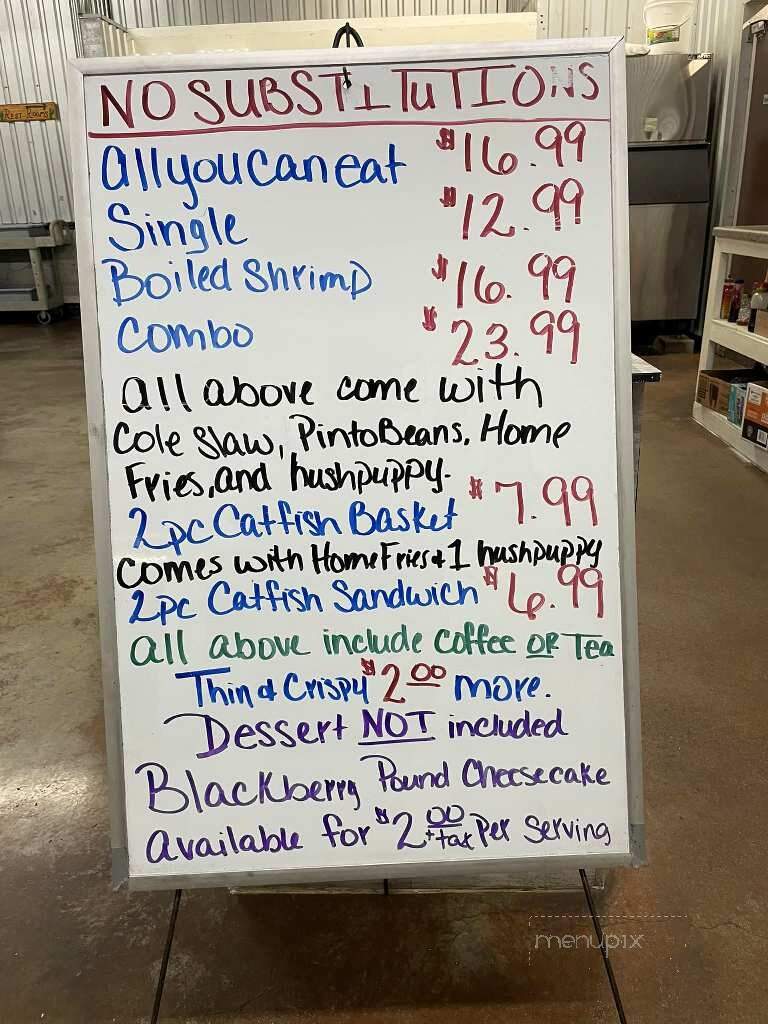 NO SUBSTITUTIONS
all you can eat $16.99
Single $12.99
Boiled Shrimp $16.99
Combo $23.99
all above come with
Cole Slaw, Pinto Beans, Home
Fries, and hushpuppy.
2pc Catfish Basket $7.99
comes with Home Fries & 1 hushpuppy
2pc Catfish Sandwich $6.99
all above include coffee OR Tea
Thin & Crispy $2.00 more.
Dessert NOT included
Blackberry Pound Cheesecake
available for $2.00 + tax Per Serving
menupix